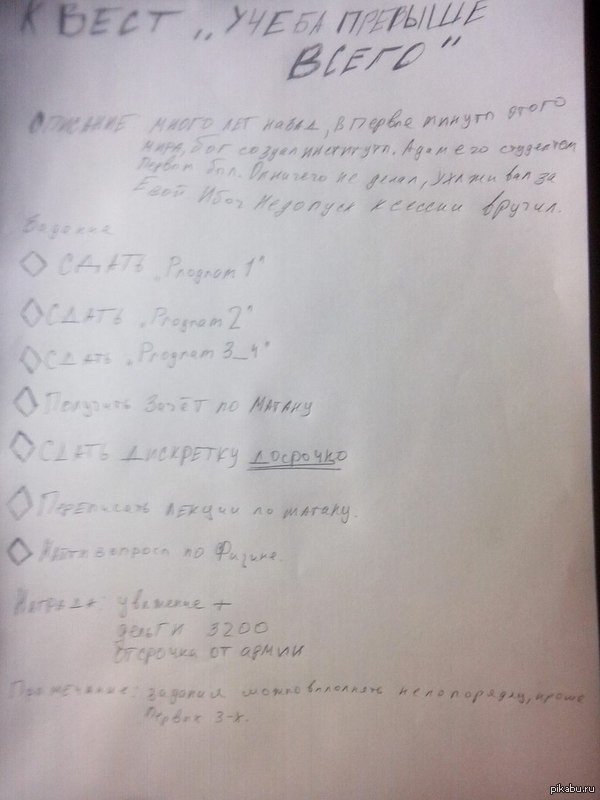 КВЕСТ „УЧЕБА ПРЕВЫШЕ
ВСЕГО"
Описание много лет назад, в первые минуты этого
мира, бог создал институты. Адам его студентом
первым был. Он ничего не делал, ухаживал за
Евой И бог Недопуск к сессии вручил.
Задания
СДАТЬ „Program 1"
СДАТЬ „Program 2"
СДАТЬ „Program 3_4"
Получить Зачёт по МАТАНУ
СДАТЬ ДИСКРЕТКУ досрочно
Переписать лекции по матану.
Найти вопросы по Физике.
Награда: уважение +
деньги 3200
отсрочка от армии
Примечание: задания можно выполнять не по порядку, кроме
первых 3-х.
pikabu.ru